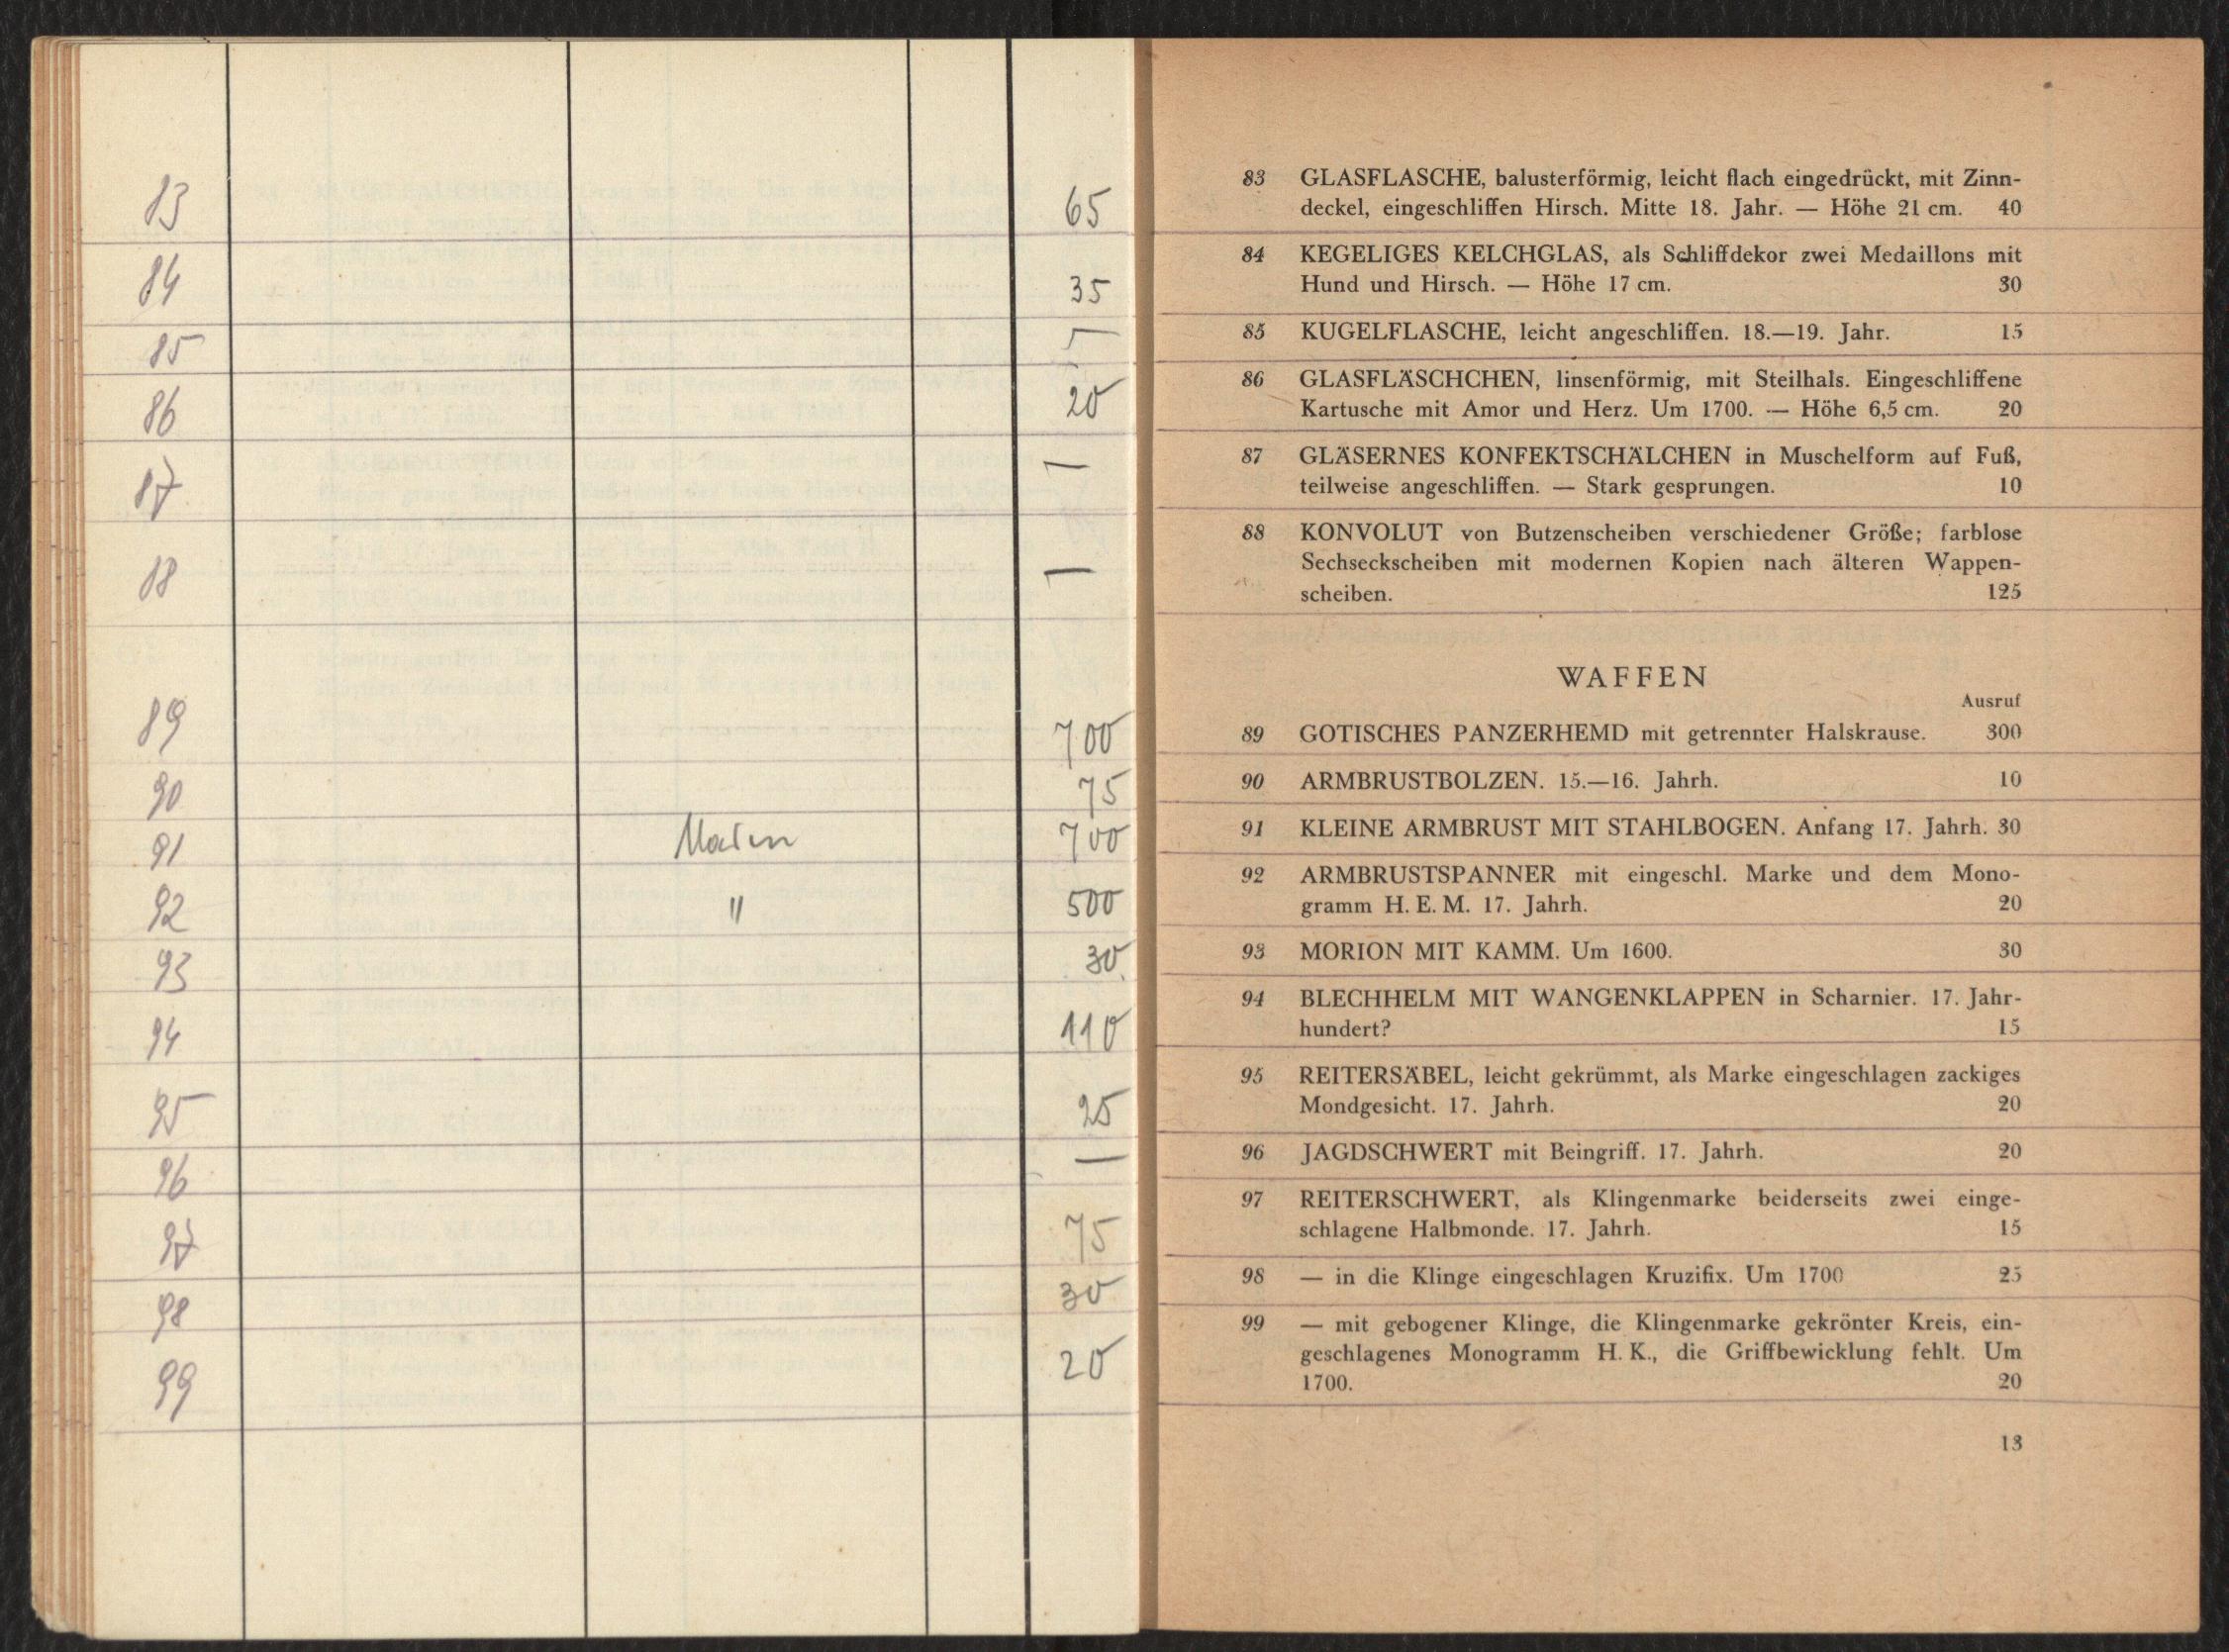 83 65
84 35
85 5
86 20
87 —
88 —
89 700
90 75
91 700
92 " 500
93 30
94 110
95 25
96 —
97 75
98 30
99 20
83 GLASFLASCHE, balusterförmig, leicht flach eingedrückt, mit Zinn-
deckel, eingeschliffen Hirsch. Mitte 18. Jahr. — Höhe 21 cm. 40
84 KEGELIGES KELCHGLAS, als Schliffdekor zwei Medaillons mit
Hund und Hirsch. — Höhe 17 cm. 30
85 KUGELFLASCHE, leicht angeschliffen. 18.—19. Jahr. 15
86 GLASFLÄSCHCHEN, linsenförmig, mit Steilhals. Eingeschliffene
Kartusche mit Amor und Herz. Um 1700. — Höhe 6,5 cm. 20
87 GLÄSERNES KONFEKTSCHÄLCHEN in Muschelform auf Fuß,
teilweise angeschliffen. — Stark gesprungen. 10
88 KONVOLUT von Butzenscheiben verschiedener Größe; farblose
Sechseckscheiben mit modernen Kopien nach älteren Wappen-
scheiben. 125
WAFFEN
Ausruf
89 GOTISCHES PANZERHEMD mit getrennter Halskrause. 300
90 ARMBRUSTBOLZEN. 15.—16. Jahrh. 10
91 KLEINE ARMBRUST MIT STAHLBOGEN. Anfang 17. Jahrh. 30
92 ARMBRUSTSPANNER mit eingeschl. Marke und dem Mono-
gramm H. E. M. 17. Jahrh. 20
93 MORION MIT KAMM. Um 1600. 30
94 BLECHHELM MIT WANGENKLAPPEN in Scharnier. 17. Jahr-
hundert? 15
95 REITERSÄBEL, leicht gekrümmt, als Marke eingeschlagen zackiges
Mondgesicht. 17. Jahrh. 20
96 JAGDSCHWERT mit Beingriff. 17. Jahrh. 20
97 REITERSCHWERT, als Klingenmarke beiderseits zwei einge-
schlagene Halbmonde. 17. Jahrh. 15
98 — in die Klinge eingeschlagen Kruzifix. Um 1700 25
99 — mit gebogener Klinge, die Klingenmarke gekrönter Kreis, ein-
geschlagenes Monogramm H. K., die Griffbewicklung fehlt. Um
1700. 20
13